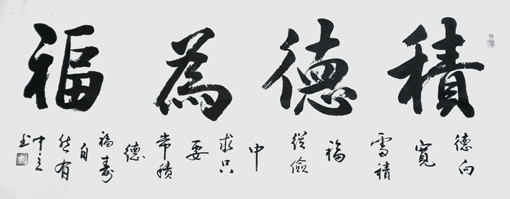 積德為福
德向
寬
處積
福
從儉
中
求只
要
常積
德
福壽
自
然有